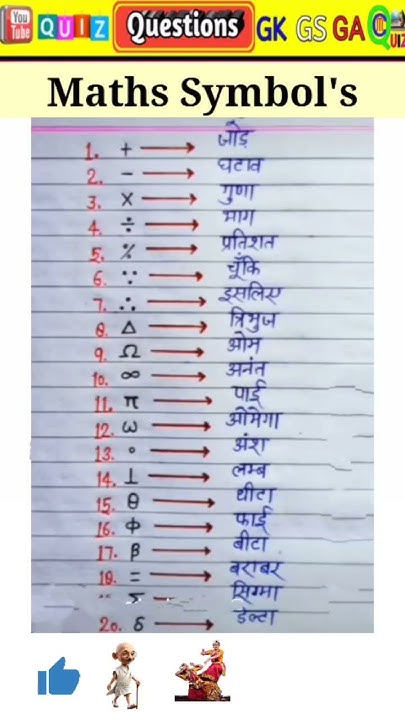 You Tube QUIZ Questions GK GS GA QUIZ
Maths Symbol's
1. + → जोड़
2. − → घटाव
3. × → गुणा
4. ÷ → भाग
5. % → प्रतिशत
6. ∵ → चूँकि
7. ∴ → इसलिए
8. Δ → त्रिभुज
9. Ω → ओम
10. ∞ → अनंत
11. π → पाई
12. ω → ओमेगा
13. ° → अंश
14. ⊥ → लम्ब
15. θ → थीटा
16. Φ → फाई
17. β → बीटा
18. = → बराबर
Σ → सिग्मा
20. δ → डेल्टा